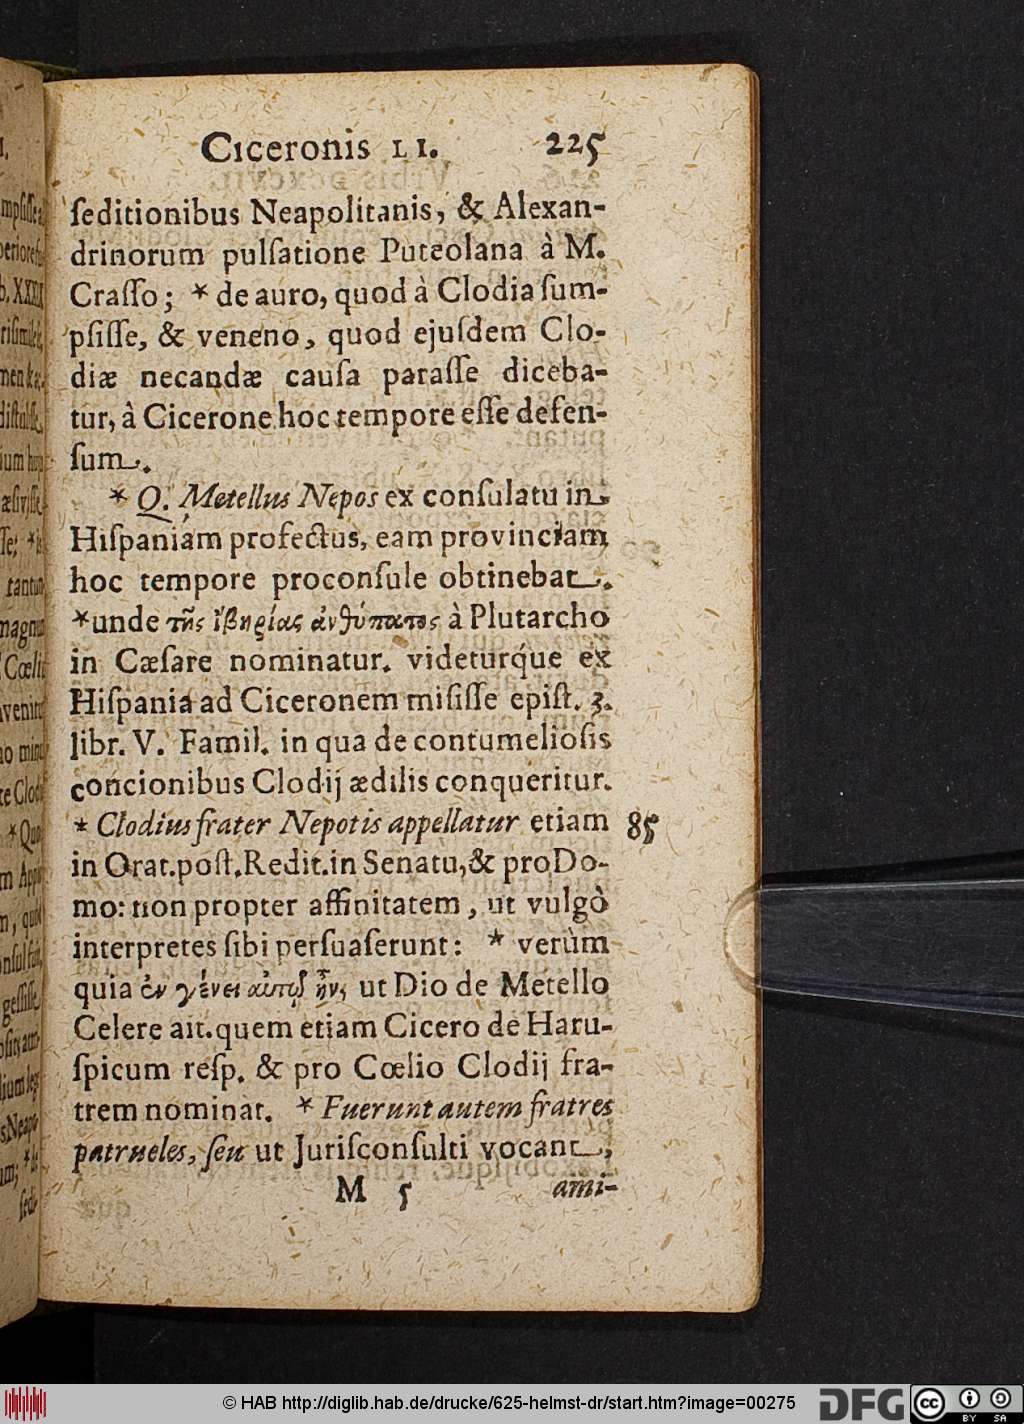 Ciceronis LI. 225
ſeditionibus Neapolitanis, & Alexan-
drinorum pulſatione Puteolana à M.
Craſſo; * de auro, quod à Clodia ſum-
pſiſſe, & veneno, quod ejuſdem Clo-
diæ necandæ cauſa paraſſe diceba-
tur, à Cicerone hoc tempore eſſe defen-
ſum.
* Q. Metellus Nepos ex conſulatu in
Hiſpaniam profectus, eam provinciam
hoc tempore proconſule obtinebat.
*unde τῆς ἰβηρίας ἀνθύπατος à Plutarcho
in Cæſare nominatur. videturq́ue ex
Hiſpania ad Ciceronem miſiſſe epiſt. 3.
libr. V. Famil. in qua de contumelioſis
concionibus Clodij ædilis conqueritur.
* Clodius frater Nepotis appellatur etiam 85
in Orat. poſt. Redit. in Senatu, & pro Do-
mo: non propter affinitatem, ut vulgò
interpretes ſibi perſuaſerunt: * verùm
quia ἐν γένει αὐτοῦ ἦν, ut Dio de Metello
Celere ait. quem etiam Cicero de Haru-
ſpicum reſp. & pro Cœlio Clodij fra-
trem nominat. * Fuerunt autem fratres
patrueles, ſeu ut Juriſconſulti vocant,
M 5 ami-
© HAB http://diglib.hab.de/drucke/625-helmst-dr/start.htm?image=00275
DFG
cc BY SA